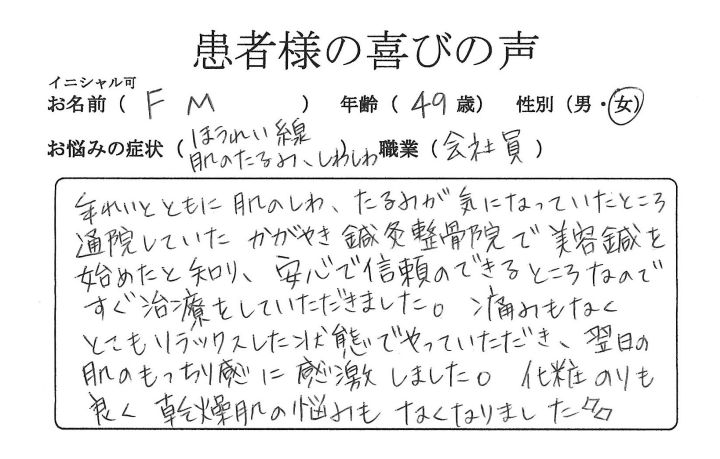 患者様の喜びの声
イニシャル可
お名前（ F M ） 年齢（ 49 歳） 性別（男・女）
お悩みの症状（ ほうれい線 肌のたるみ、しわしわ ） 職業（ 会社員 ）
年れいとともに肌のしわ、たるみが気になっていたところ
通院していたかがやき鍼灸整骨院で美容鍼を
始めたと知り、安心で信頼のできるところなので
すぐ治療をしていただきました。痛みもなく
とてもリラックスした状態でやっていただき、翌日の
肌のもっちり感に感激しました。化粧のりも
良く乾燥肌の悩みもなくなりました